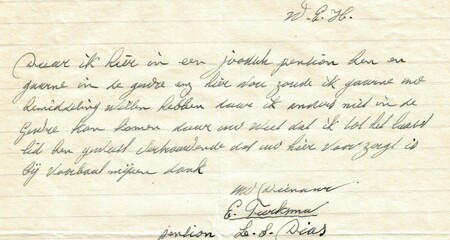 W. E. H.
Daar ik hier in een joodsch pension ben en
gaarne in de
hier voor zoude ik gaarne uwe
bemiddeling willen hebben daar ik anders niet in de
kan komen daar uw weet dat ik tot het laatst
lid ben geweest dat uw hier voor zorgt is
bij voorbaat mijnen dank
uw dienaar
E. Turksma
pension L. S. Dias